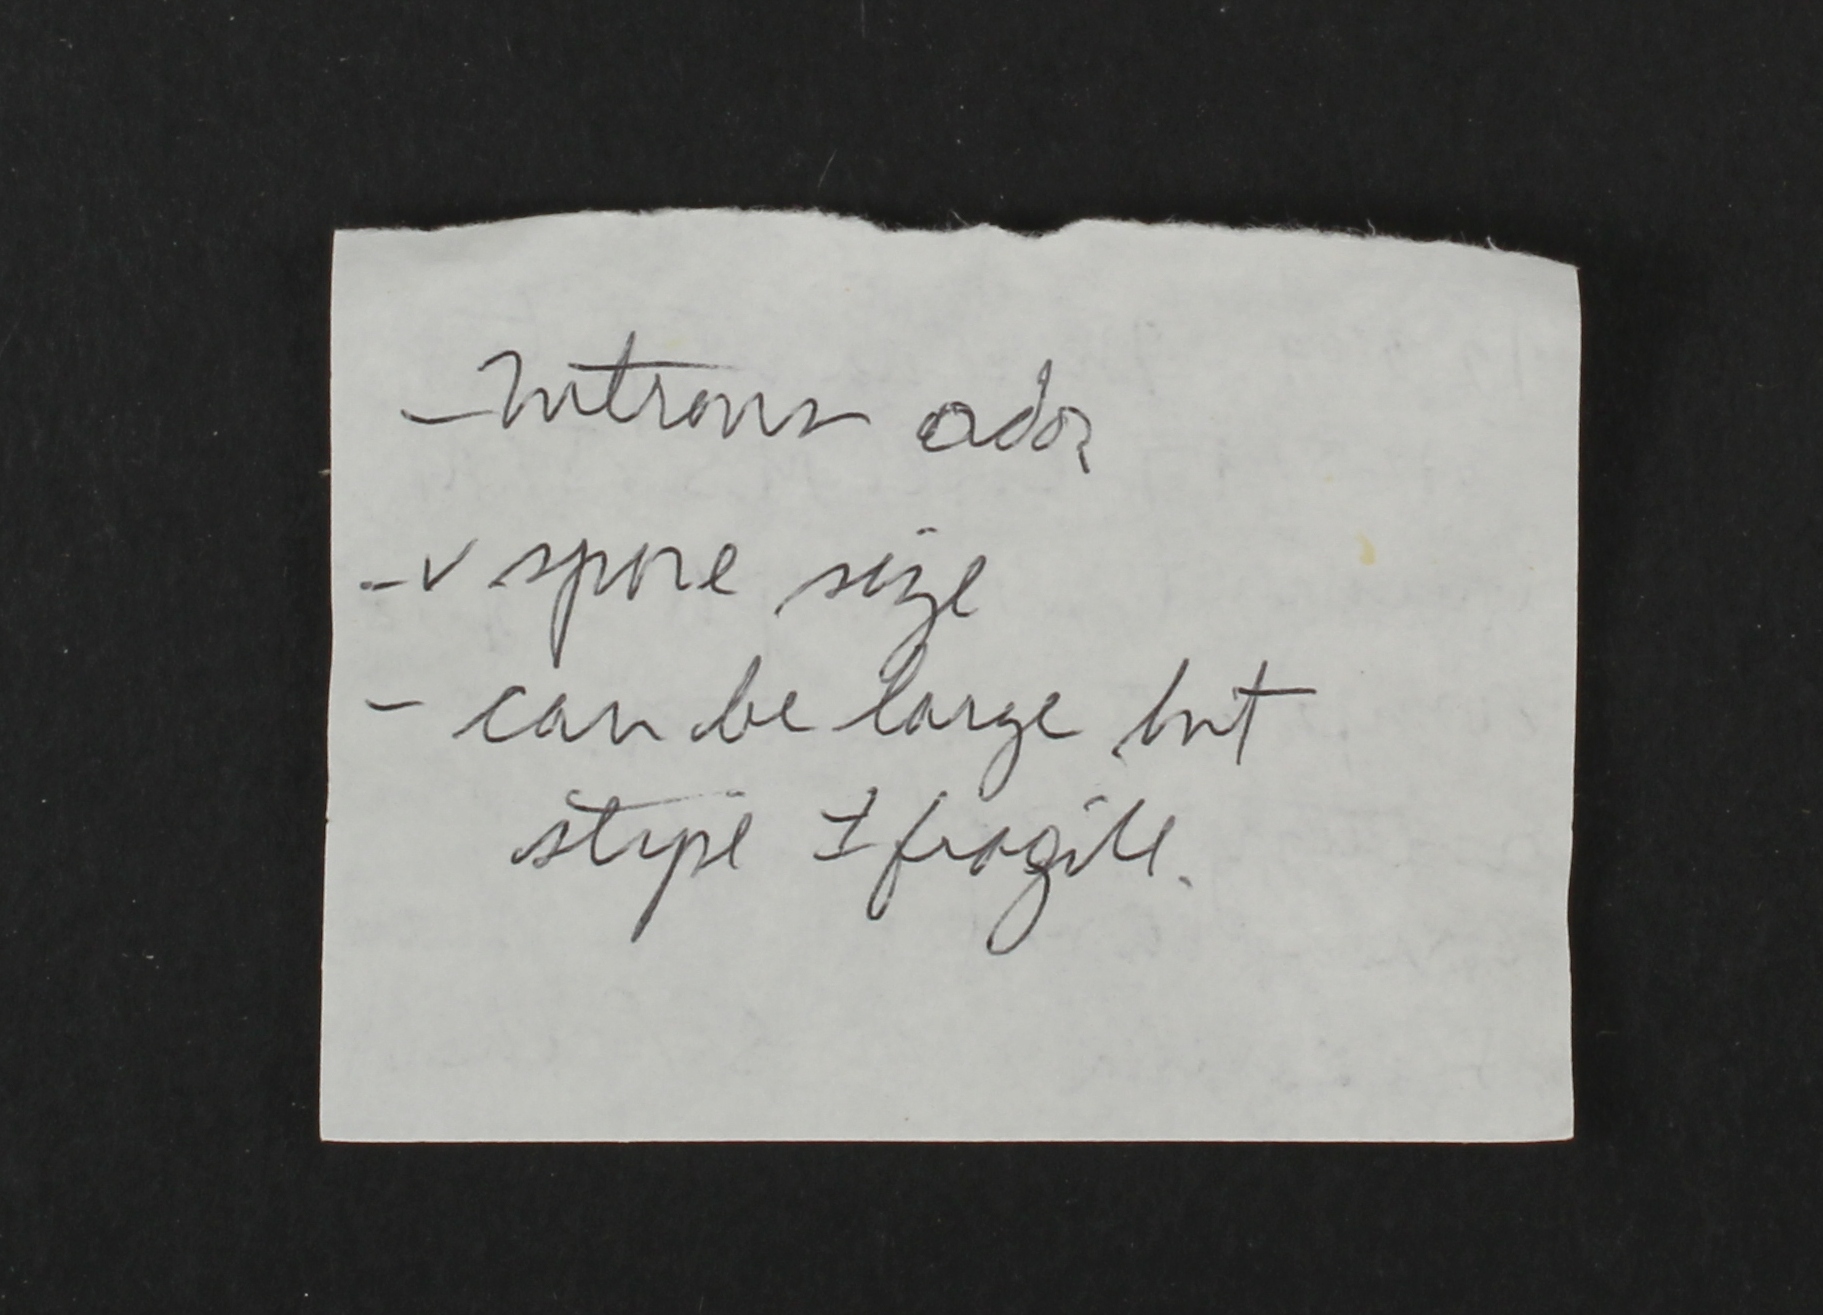 - nitrous odor
- ✓ spore size
- can be large but
stipe ± fragile.